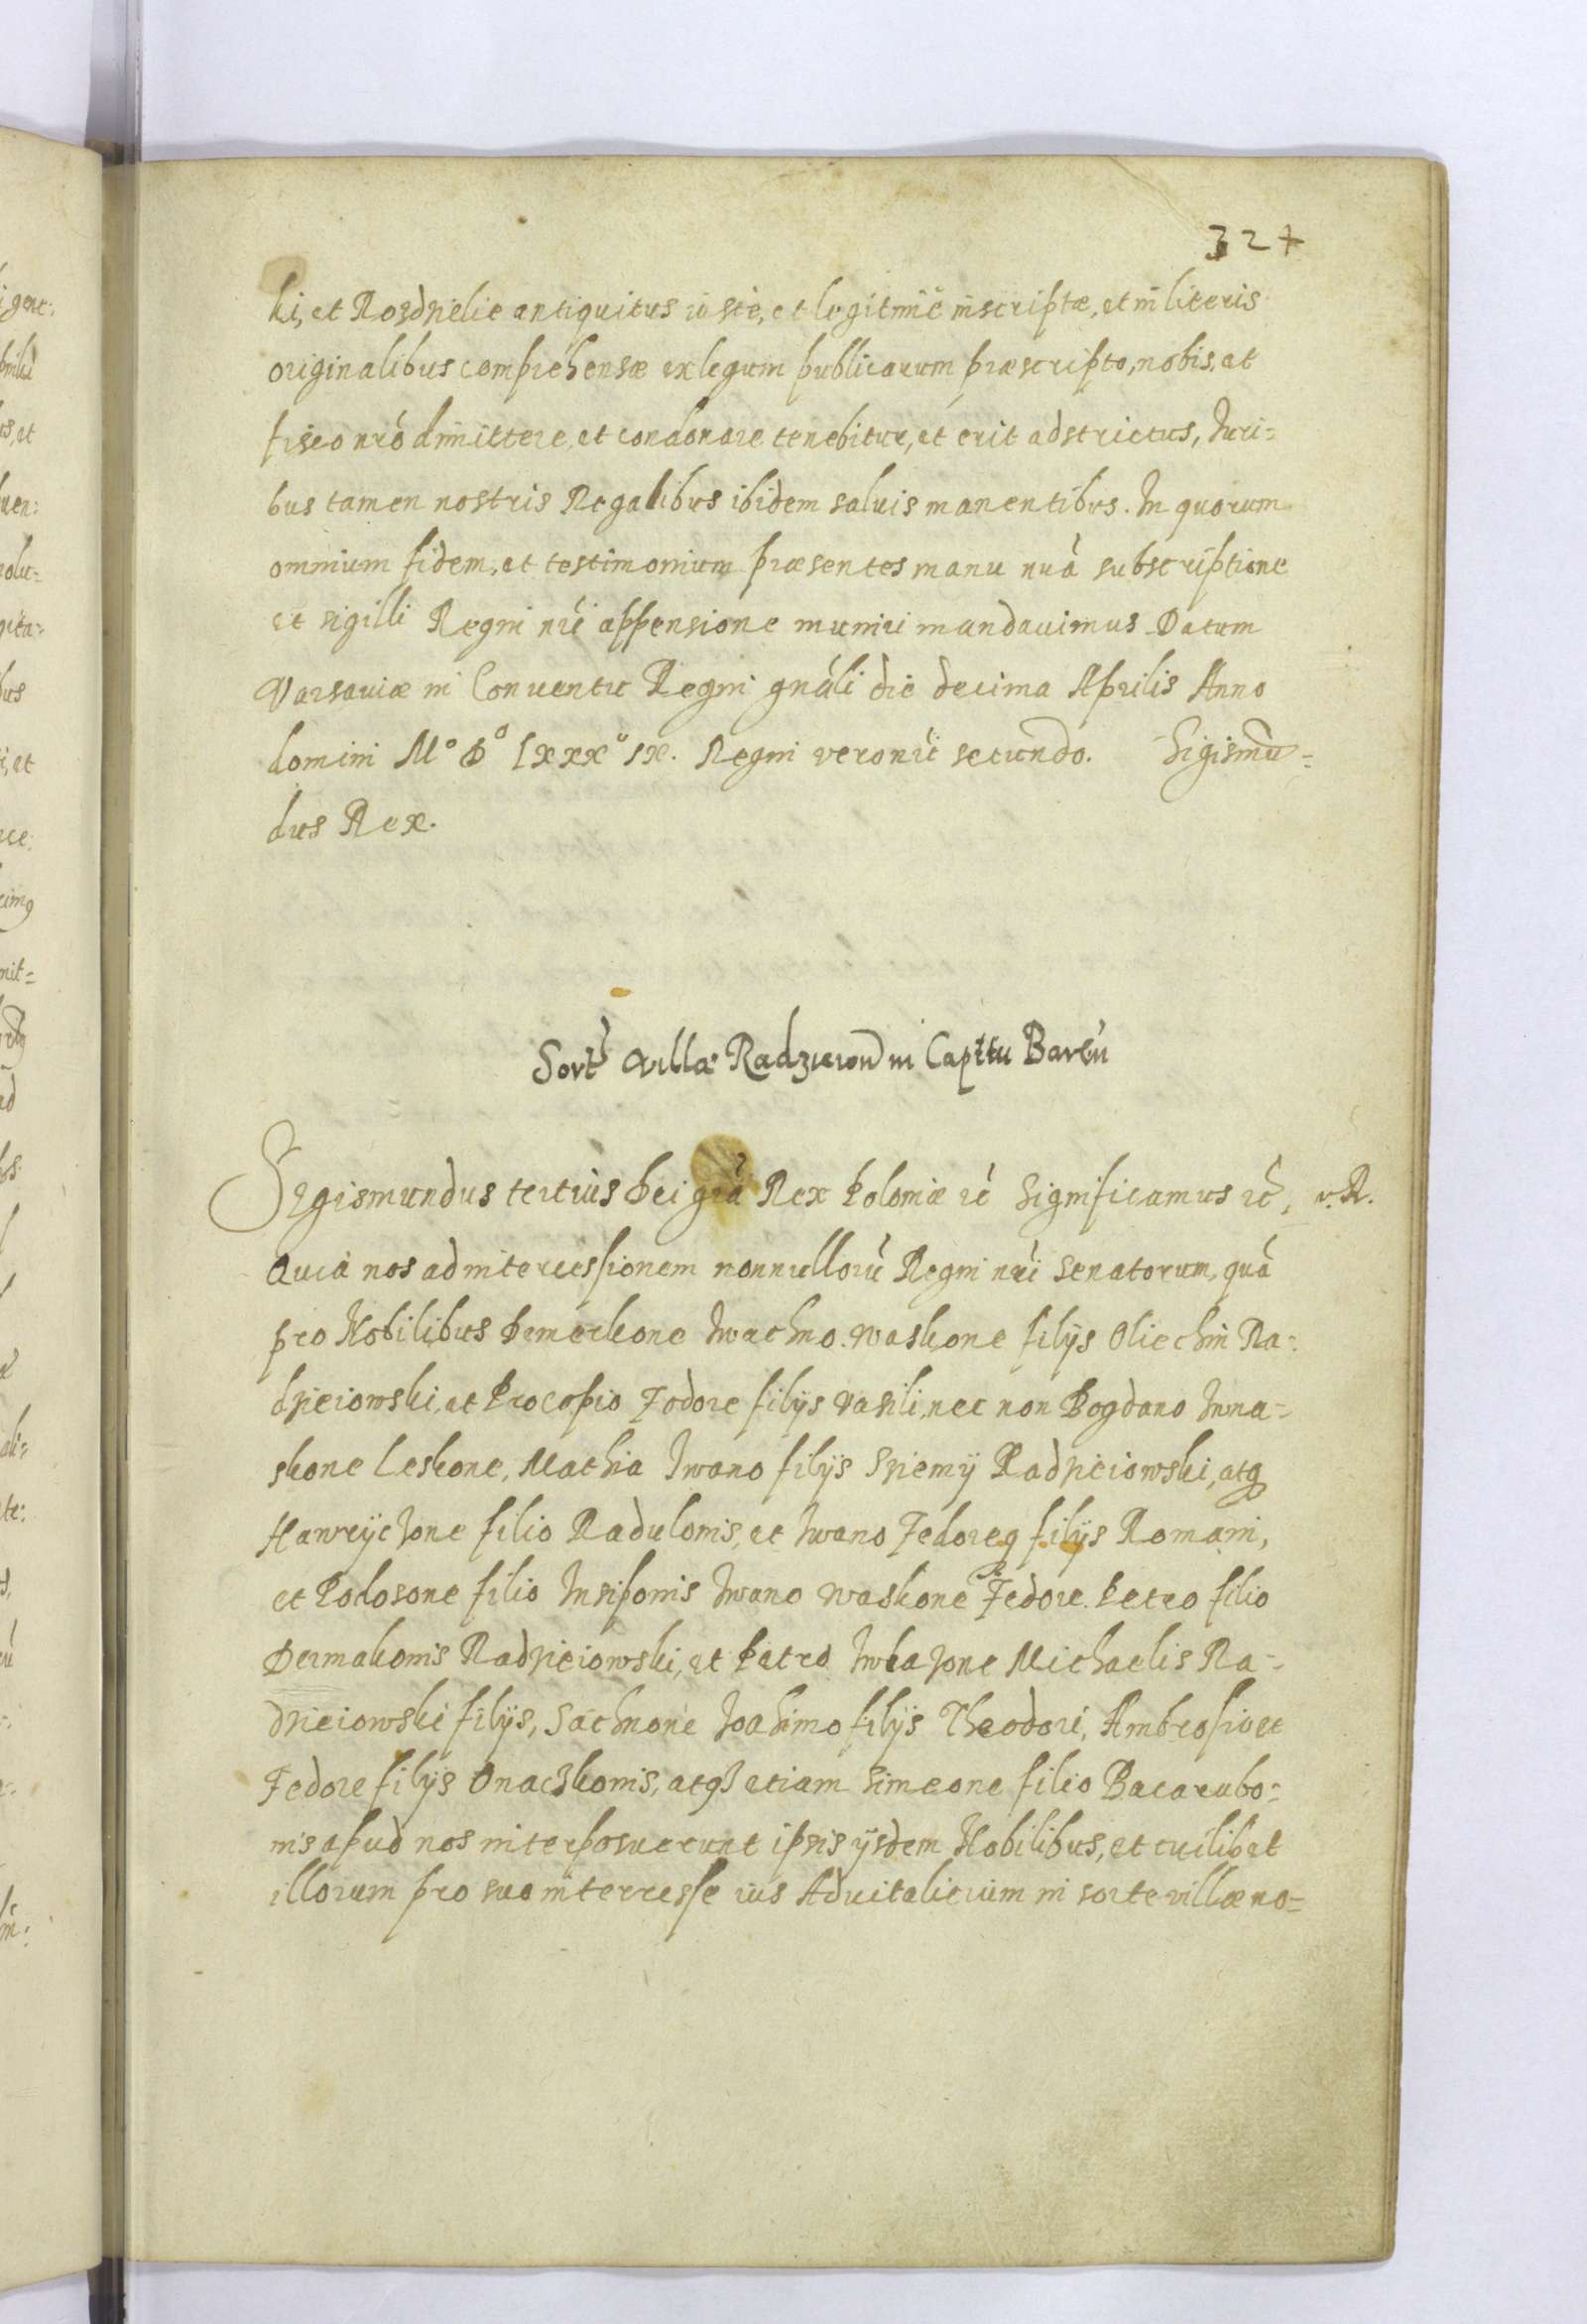 327
ki, et Rozdzielie antiquitus iustè, et legitimè inscriptæ, et in literis
originalibus comprehensæ ex legum publicarum præscripto, nobis, et
fisco nro dimittere, et condonare tenebitur, et erit adstrictus, Iuri=
bus tamen nostris Regalibus ibidem saluis manentibus. In quorum
omnium fidem, et testimonium præsentes manu nrà subscriptione
et sigilli Regni nri appensione muniri mandauimus Datum
Varsauiæ in Conuentu Regni gnali die decima Aprilis Anno
domini M° D° Lxxx° ix. Regni vero nri secundo. Sigismu=
dus Rex.
Sort Villæ Radzieiow in Capttu Baren
Sigismundus tertius Dei gra Rex Poloniæ rc Significamus rc, v. R.
Quia nos ad intercessionem nonnulloru Regni nri Senatorum, qua
pro Nobilibus Dmerkone Iwachno. Waskone filijs Oliechin Ra=
dzieiowski, et Procopio Fodore filijs Vasili, nec non Bogdano Iwa=
skone Leskone, Mathia Iwano filijs Sziemij Radzieiowski, atq
Hawryjchone filio Radulonis, et Iwano Fedoreq filijs Romani,
et Polosone filio Insiponis Iwano Waskone Fedore. Petro filio
Dermakonis Radzieiowski, et Petro Iwchone Michaelis Ra=
dzieiowski filijs, Sachnone Joahimo filijs Theodori, Ambrosio et
Fedore filijs Onaczkonis, atqz etiam Simeone filio Bacarubo=
nis apud nos interposuerunt ipsis ijsdem Nobilibus, et cuilibet
illorum pro suo interresse ius Aduitalitium in sorte villæ no=